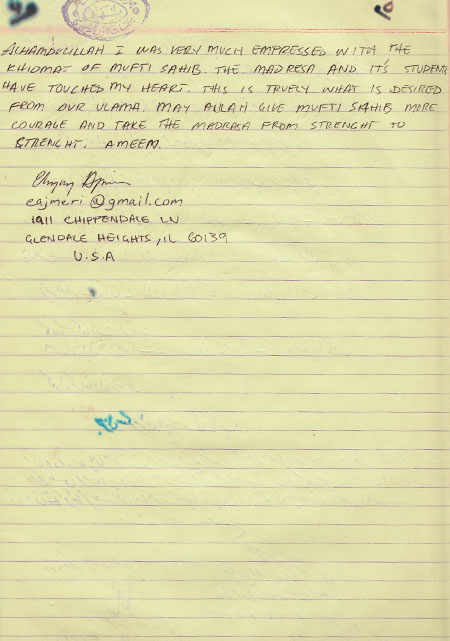 ALHAMDULILLAH I WAS VERY MUCH EMPRESSED WITH THE
KHIDMAT OF MUFTI SAHIB. THE MADRESA AND IT'S STUDENTS
HAVE TOUCHED MY HEART. THIS IS TRUELY WHAT IS DESIRED
FROM OUR ULAMA. MAY ALLAH GIVE MUFTI SAHIB MORE
COURAGE AND TAKE THE MADRASA FROM STRENGHT TO
STRENGHT. AMEEM.
eajmeri@gmail.com
1911 CHIPPENDALE LN
GLENDALE HEIGHTS, IL 60139
U.S.A